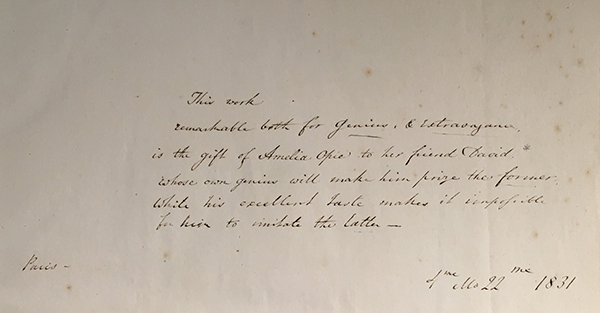 This work
remarkable both for Genius, & Extravagance,
is the gift of Amelia Opie to her friend David,*
whose own genius will make him prize the former,
while his excellent taste makes it impossible
for him to imitate the latter —
Paris —
4me Mo 22me 1831